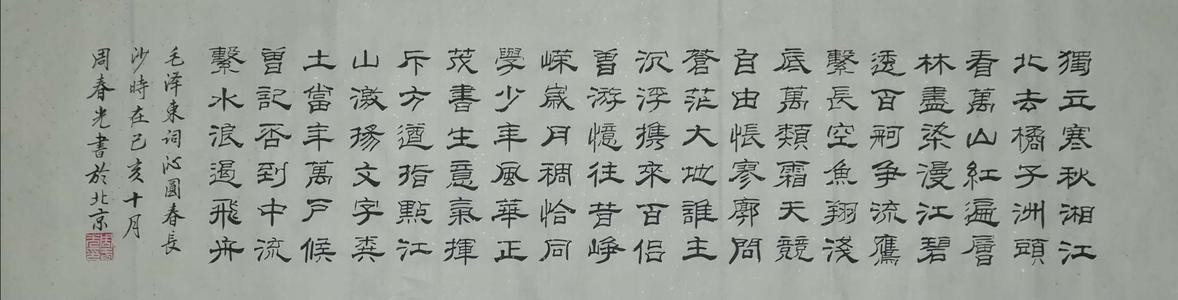 獨立寒秋湘江
北去橘子洲頭
看萬山紅遍層
林盡染漫江碧
透百舸爭流鷹
繫長空魚翔淺
底萬類霜天競
自由悵寥廓問
蒼茫大地誰主
沉浮携來百侣
曾游憶往昔崢
嶸歲月稠恰同
學少年風華正
茂書生意氣揮
斥方遒指點江
山激揚文字糞
土當年萬户候
曾記否到中流
繫水浪遏飛舟
毛泽東词沁圓春長
沙時在己亥十月
周春光書於北京